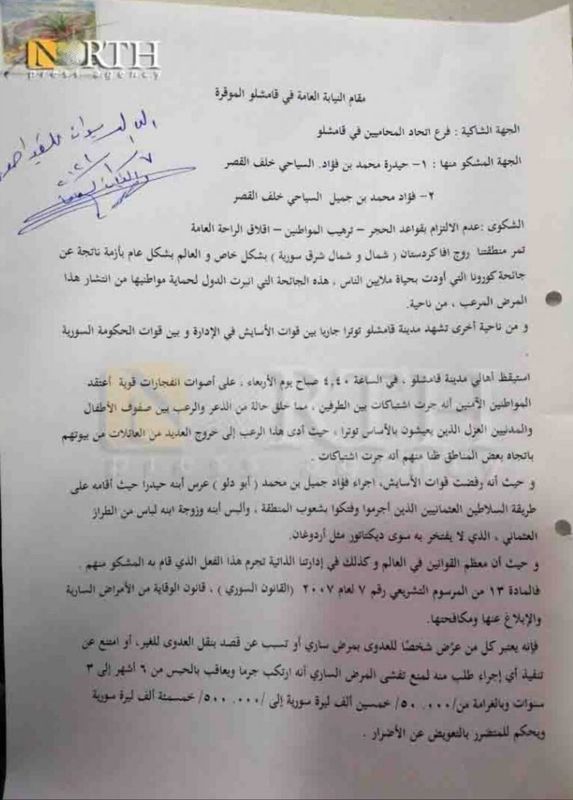 NORTH
press agency
مقام النيابة العامة في قامشلو الموقرة
الجهة الشاكية : فرع اتحاد المحاميين في قامشلو
الجهة المشكو منها : ١- حيدرة محمد بن فؤاد. السياحي خلف القصر
٢- فؤاد محمد بن جميل السياحي خلف القصر
الشكوى: عدم الالتزام بقواعد الحجر – ترهيب المواطنين – اقلاق الراحة العامة
تمر منطقتنا روج افا كردستان ( شمال و شمال شرق سورية ) بشكل خاص و العالم بشكل عام بأزمة ناتجة عن
جائحة كورونا التي أودت بحياة ملايين الناس ، هذه الجائحة التي انبرت الدول لحماية مواطنيها من انتشار هذا
المرض المرعب ، من ناحية.
و من ناحية أخرى تشهد مدينة قامشلو توترا جاريا بين قوات الأسايش في الإدارة و بين قوات الحكومة السورية
.
استيقظ أهالي مدينة قامشلو ، في الساعة ٤،٤٠ صباح يوم الأربعاء ، على أصوات انفجارات قوية أعتقد
المواطنين الآمنين أنه جرت اشتباكات بين الطرفين ، مما خلق حالة من الذعر والرعب بين صفوف الأطفال
والمدنيين العزل الذين يعيشون بالأساس توترا ، حيث أدى هذا الرعب إلى خروج العديد من العائلات من بيوتهم
باتجاه بعض المناطق ظنا منهم أنه جرت اشتباكات .
و حيث أنه رفضت قوات الأسايش، اجراء فؤاد جميل بن محمد ( أبو دلو ) عرس أبنه حيدرا حيث أقامه على
طريقة السلاطين العثمانيين الذين أجرموا وفتكوا بشعوب المنطقة ، وألبس أبنه وزوجة ابنه لباس من الطراز
العثماني ، الذي لا يفتخر به سوى ديكتاتور مثل أردوغان.
و حيث أن معظم القوانين في العالم و كذلك في إدارتنا الذاتية تجرم هذا الفعل الذي قام به المشكو منهم .
فالمادة ١٣ من المرسوم التشريعي رقم ٧ لعام ٢٠٠٧ (القانون السوري ) ، قانون الوقاية من الأمراض السارية
والإبلاغ عنها ومكافحتها.
فإنه يعتبر كل من عرّض شخصًا للعدوى بمرض ساري أو تسبب عن قصد بنقل العدوى للغير، أو امتنع عن
تنفيذ أي إجراء طلب منه لمنع تفشي المرض الساري أنه ارتكب جرما ويعاقب بالحبس من ٦ أشهر إلى ٣
سنوات وبالغرامة من/٥٠.٠٠٠/ خمسين ألف ليرة سورية إلى /٥٠٠.٠٠٠/ خمسمئة ألف ليرة سورية
ويحكم للمتضرر بالتعويض عن الأضرار .